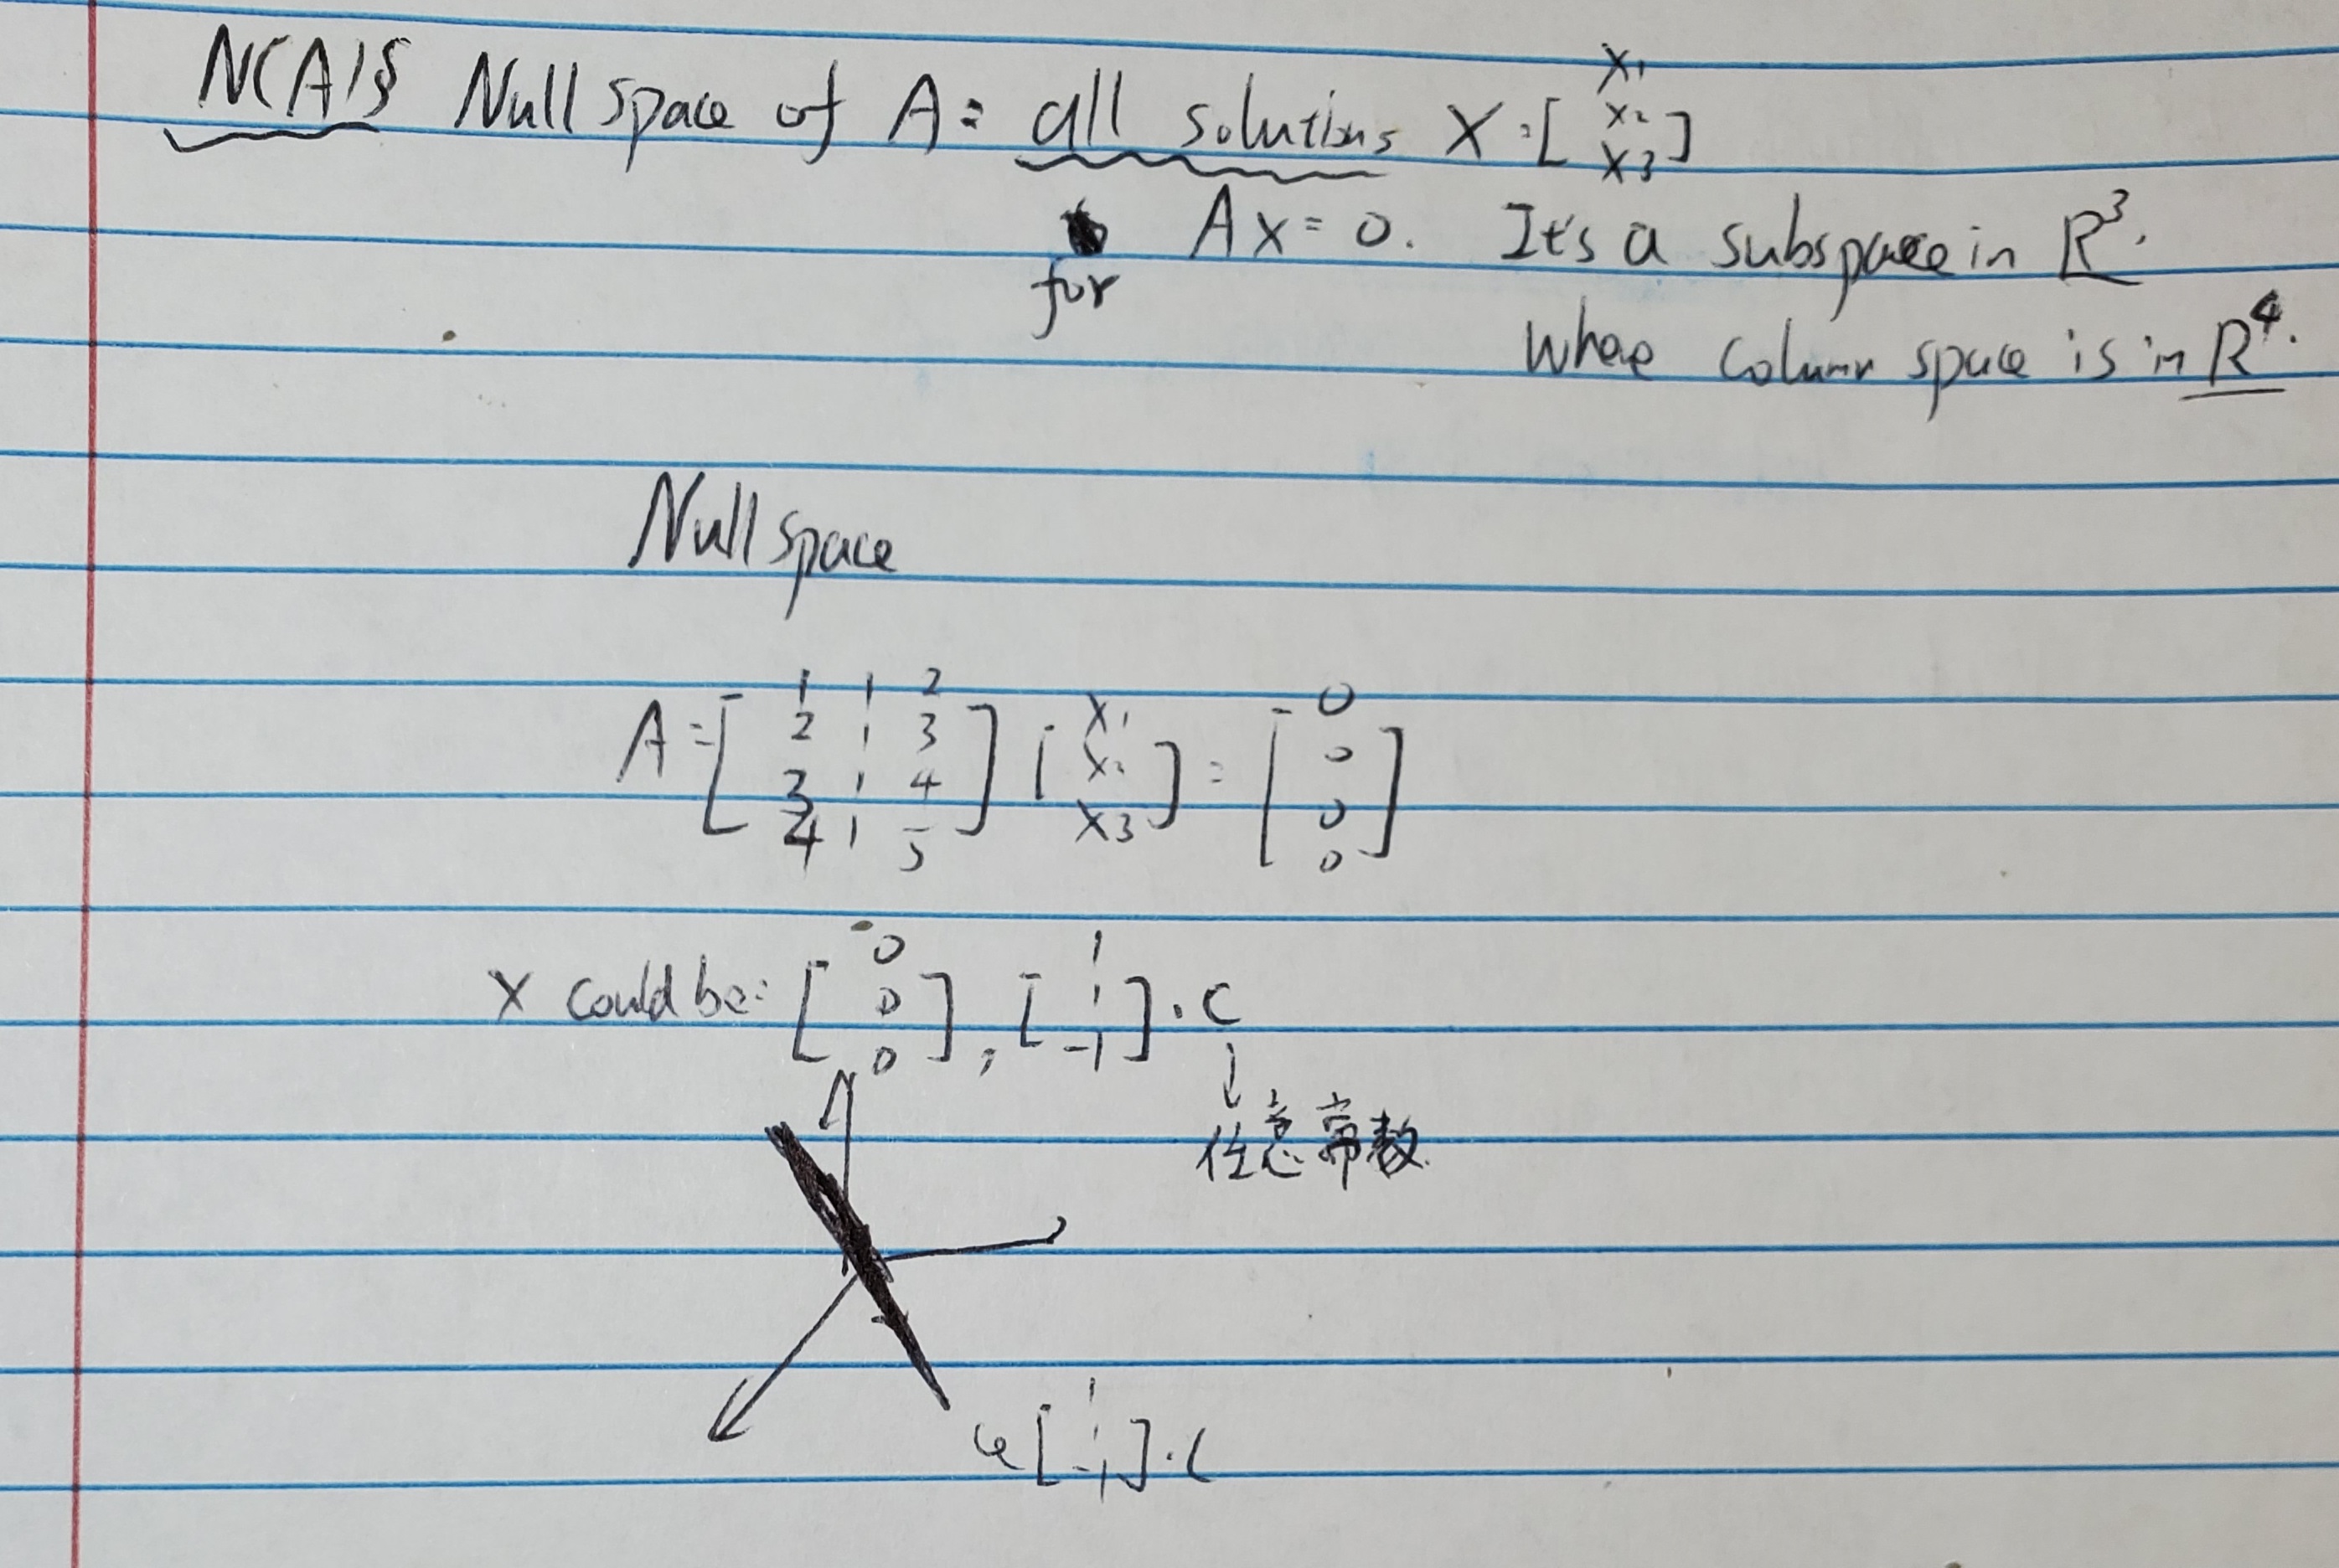 N(A)} Null space of A: all solutions X = [ x1 x2 x3 ]
for Ax = 0. It's a subspace in R³.
where column space is in R⁴.
Null space
A = [ 1 1 2
2 1 3
3 1 4
4 1 5 ] [ x1 x2 x3 ] = [ 0 0 0 0 ]
X could be: [ 0 0 0 ], [ 1 1 -1 ] · C
↓
任意常数.
[ 1 1 -1 ] · C